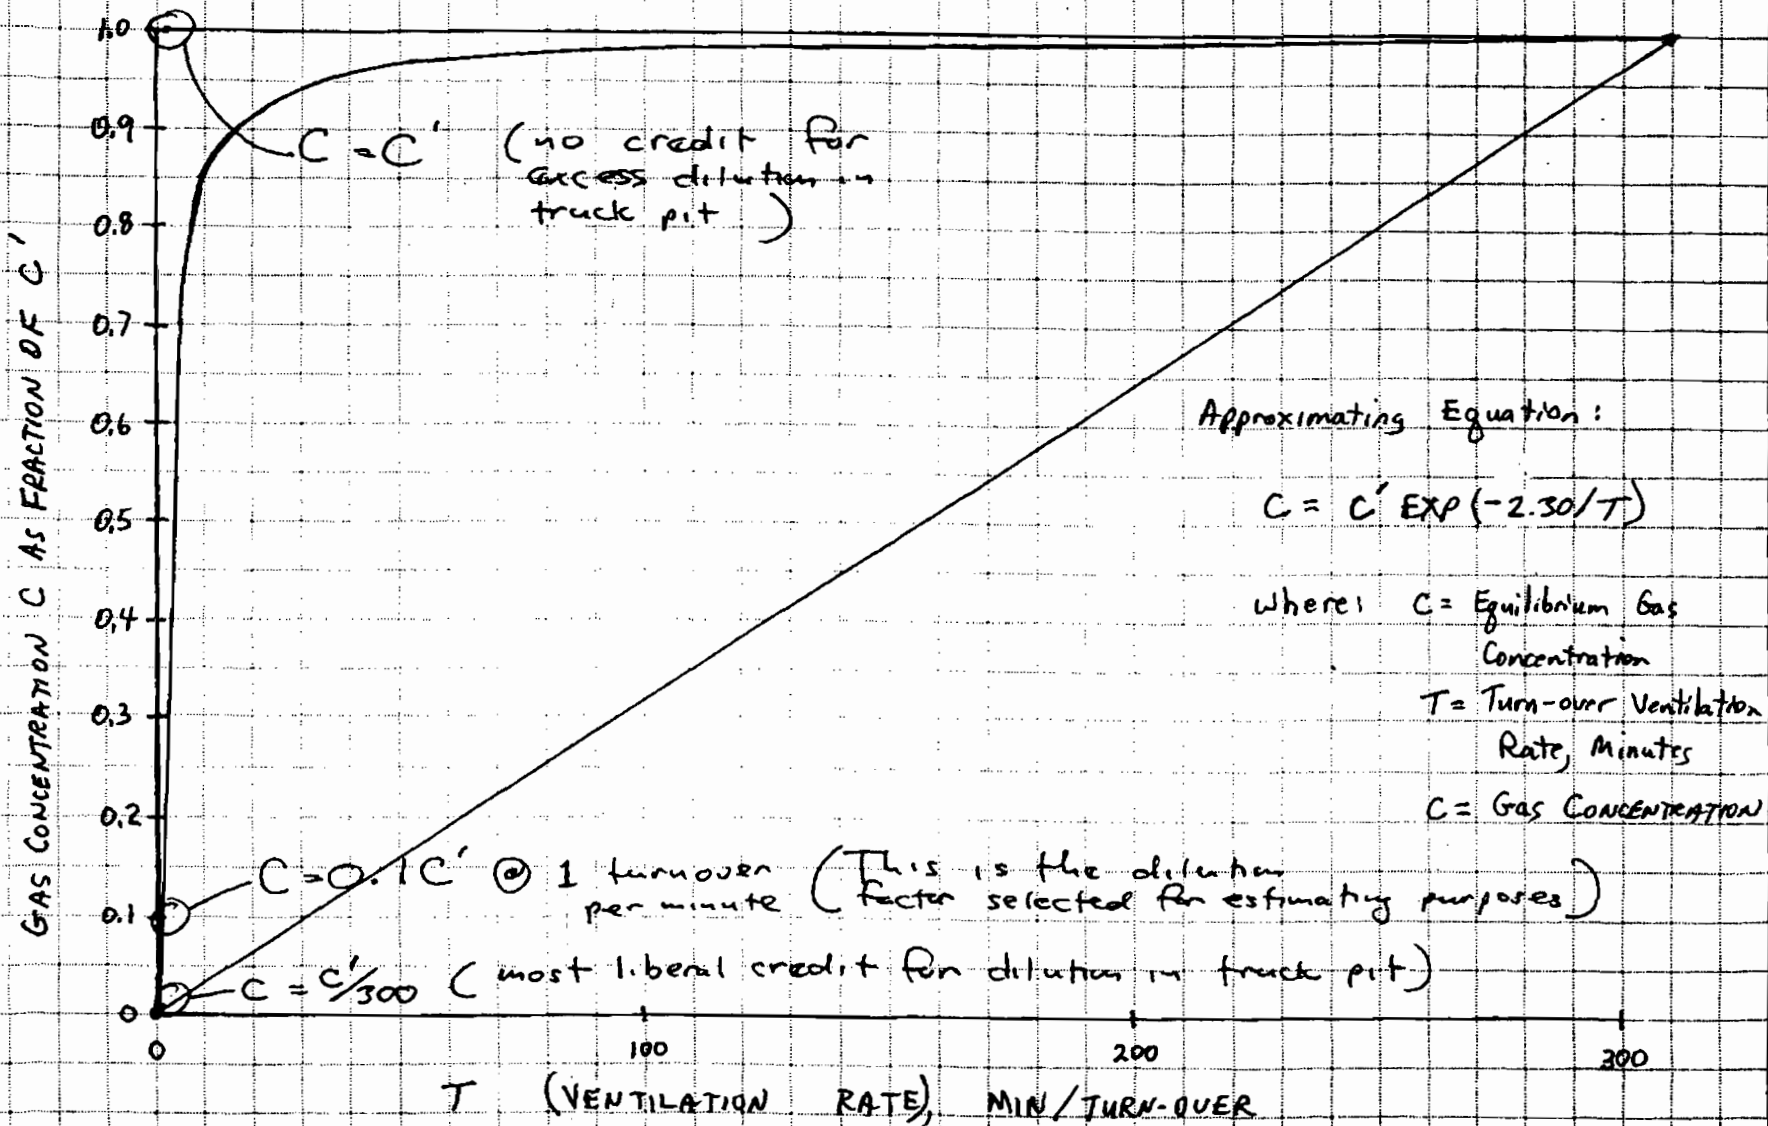 GAS CONCENTRATION C AS FRACTION OF C'
1.0
0.9
0.8
0.7
0.6
0.5
0.4
0.3
0.2
0.1
0
C = C' (no credit for
access dilution in
truck pit)
Approximating Equation:
C = C' EXP(-2.30/T)
where: C = Equilibrium Gas
Concentration
T = Turn-over Ventilation
Rate, Minutes
C = Gas CONCENTRATION
C = 0.1C' @ 1 turnover (This is the dilution
per minute factor selected for estimating purposes)
C = C'/300 (most liberal credit for dilution in truck pit)
0 100 200 300
T (VENTILATION RATE), MIN/TURN-OVER